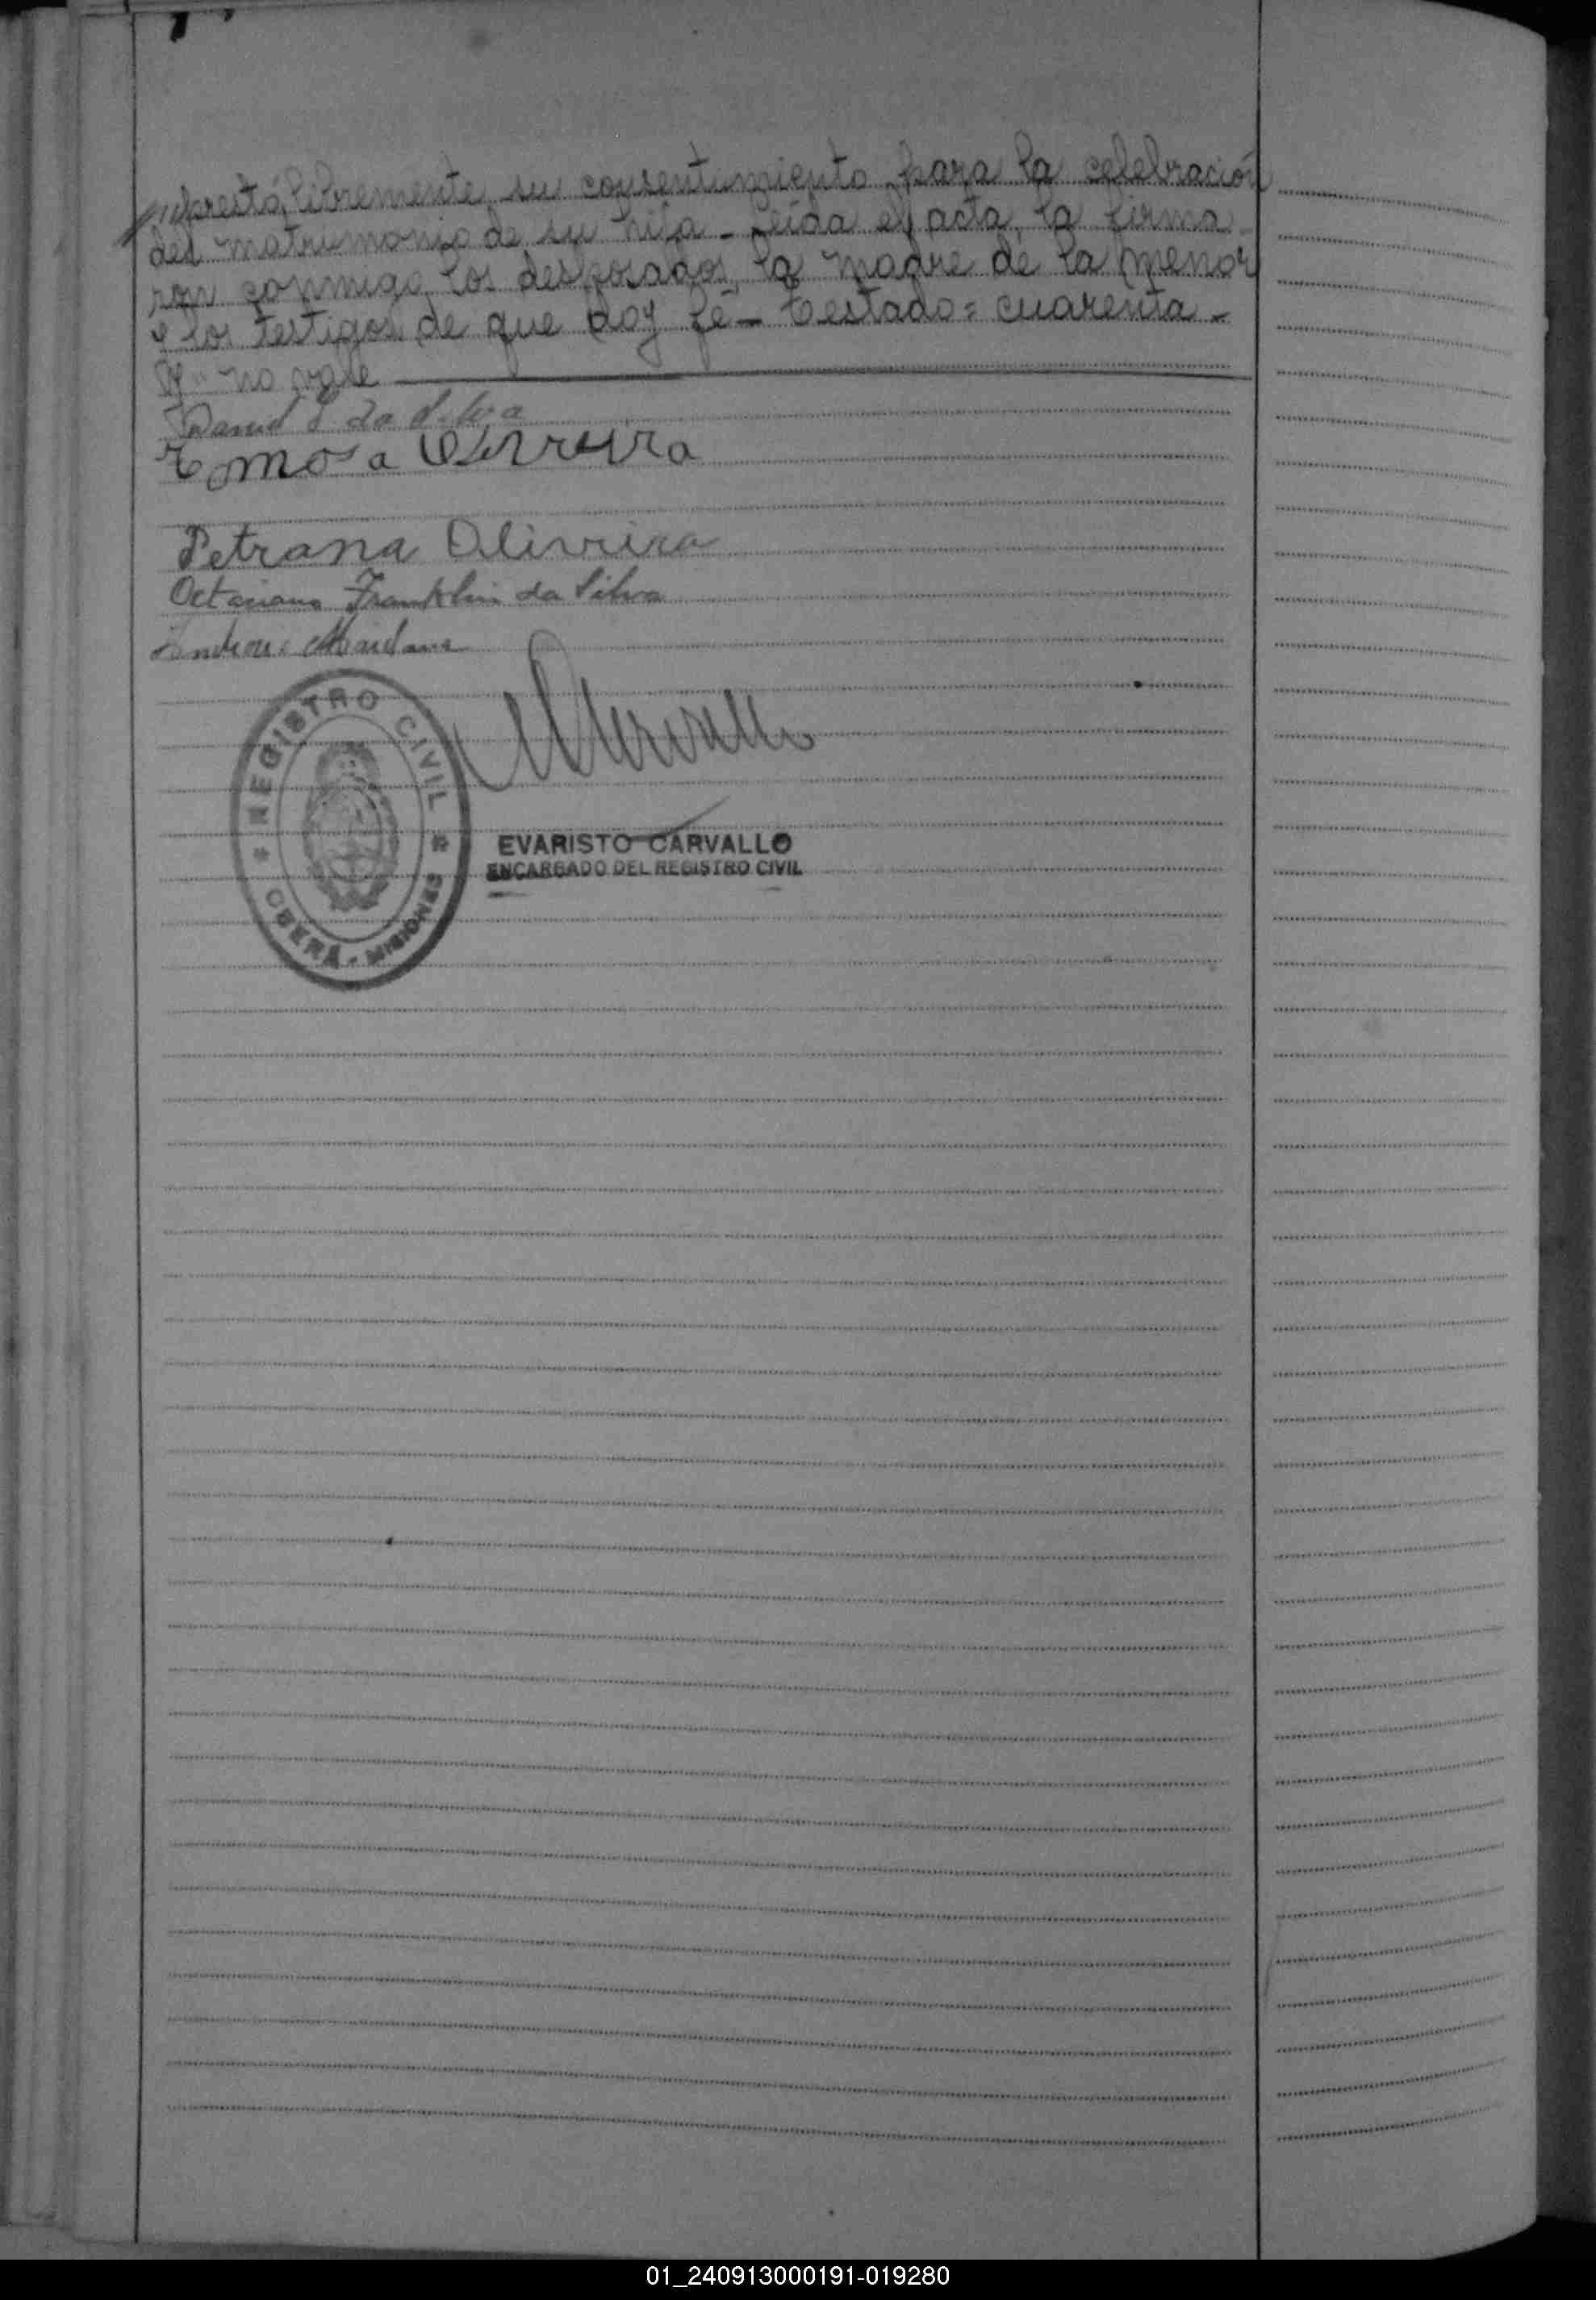 prestó libremente su consentimiento para la celebración
del matrimonio de su hija - Leída el acta, la firma
ron conmigo, los desposados, la madre de la menor
y los testigos de que doy fé - Testado = cuarenta -
no vale
da Silva
Petrana Oliveira
Octaciano Franklin da Silva
REGISTRO CIVIL
OBERÁ - MISIONES
EVARISTO CARVALLO
ENCARGADO DEL REGISTRO CIVIL
01_240913000191-019280